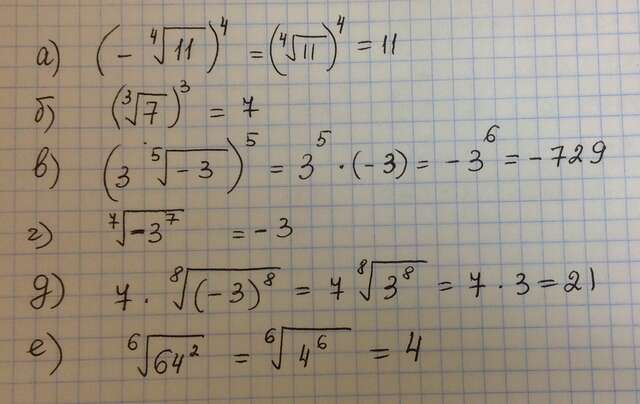 а) (- ⁴√11)⁴ = (⁴√11)⁴ = 11
б) (³√7)³ = 7
в) (3 ⁵√-3)⁵ = 3⁵ · (-3) = -3⁶ = -729
г) ⁷√-3⁷ = -3
д) 7 · ⁸√(-3)⁸ = 7 ⁸√3⁸ = 7 · 3 = 21
е) ⁶√64² = ⁶√4⁶ = 4